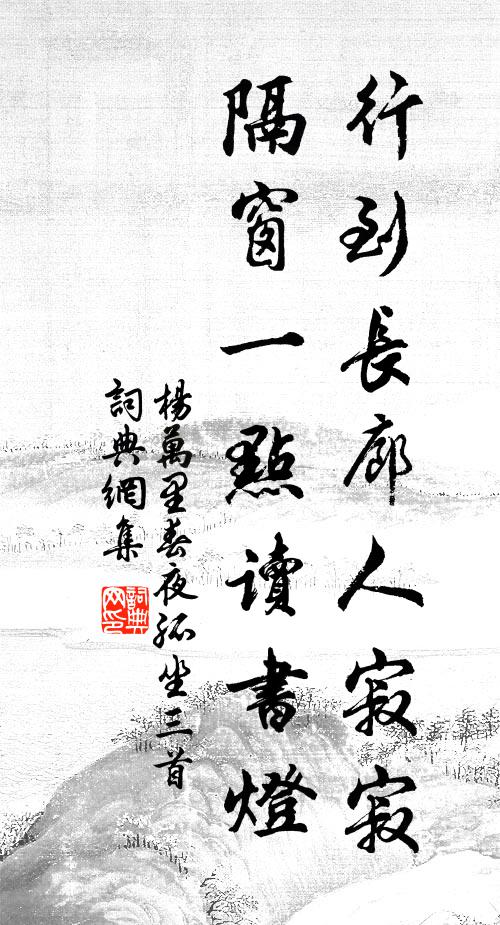 行到長廊人寂寂
隔窗一點讀書燈
楊萬里春夜孤坐三首
詞典網集
詞典網印